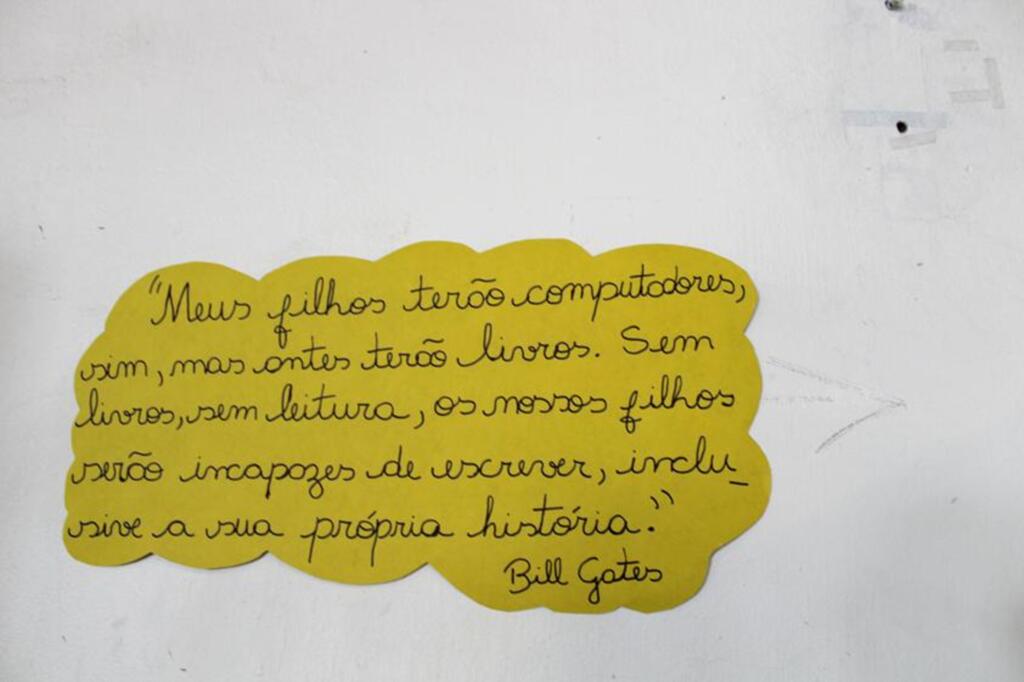 "Meus filhos terão computadores,
sim, mas antes terão livros. Sem
livros, sem leitura, os nossos filhos
serão incapazes de escrever, inclu_
sive a sua própria história."
Bill Gates